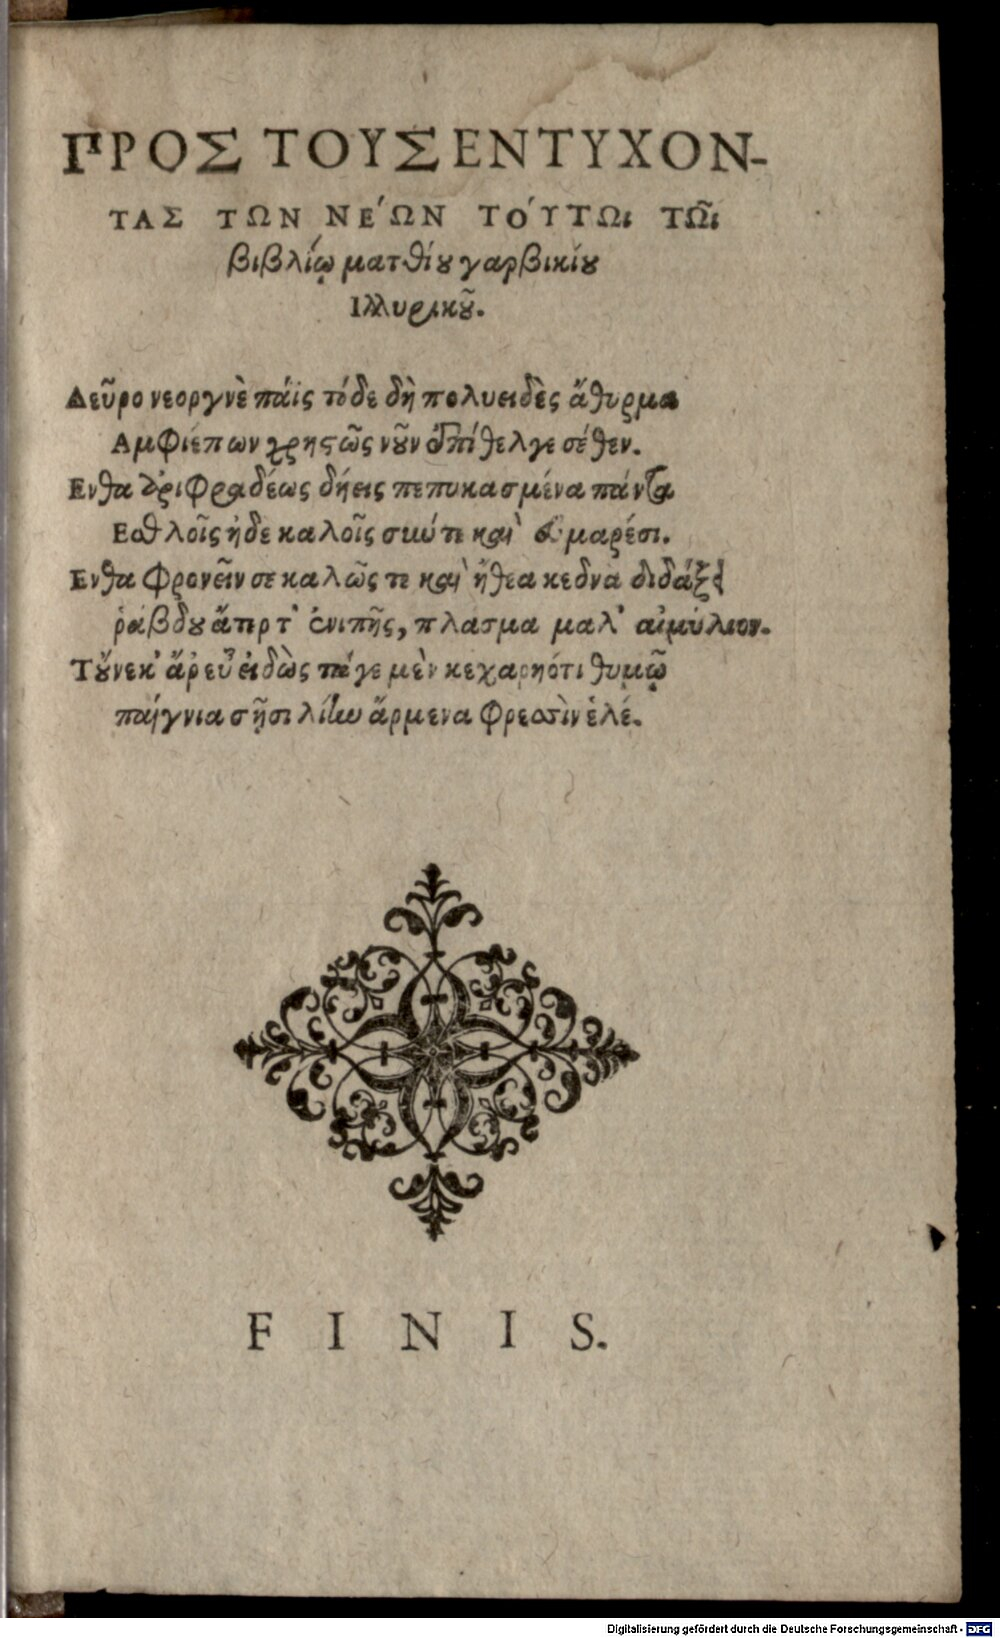 ΠΡΟΣ ΤΟΥΣ ΕΝΤΥΧΟΝ-
ΤΑΣ ΤΩΝ ΝΕ΄ΩΝ ΤΟ΄ΥΤΩι ΤΩ͂ι
βιβλίῳ ματθίου γαρβικίου
Ιλλυρικοῦ.
Δεῦρο νεοργνὲ πάϊς τόδε δὴ πολυειδὲς ἄθυρμα
Αμφιέπων χρηστῶς νοῦν ἐπίθελγε σέθεν.
Ενθα ἀριφραδέως δήεις πεπυκασμένα πάντα
Εσθλοῖς ἠδὲ καλοῖς σιώ τε καὶ μαρέσι.
Ενθα φρονεῖν σε καλῶς τε καὶ ἤθεα κεδνὰ διδάξει
ῥάβδου ἄτερ τ' ἐνιπῆς, πλάσμα μαλ' αἱμύλιον.
Τοὔνεκ' ἄρ εὖ εἰδὼς τάγε μὲν κεχαρηότι θυμῷ
παίγνια σῇσι λίην ἄρμενα φρεσὶν ἑλέ.
F I N I S.
Digitalisierung gefördert durch die Deutsche Forschungsgemeinschaft - DFG